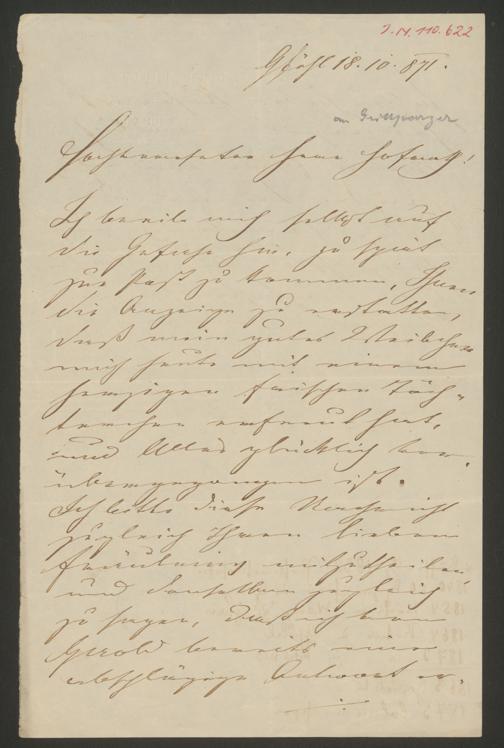 I.N. 110.622
Gföhl 18.10.871.
an Grillparzer
Hochverehrter Herr Hofrath!
Ich beeile mich selbst auf
die Gefahr hin, zu spät
zur Post zu kommen, Ihnen
die Anzeige zu erstatten,
daß mein gutes Weibchen
mich heute mit einem
herzigen frischen Töch-
terchen erfreut hat,
und Alles glücklich vor-
übergegangen ist.
Ich bitte diese Nachricht
zugleich Ihren lieben
Fräuleins mitzutheilen
und denselben zugleich
zu sagen, daß ich von
Gerold bereits eine
abschlägige Antwort er-